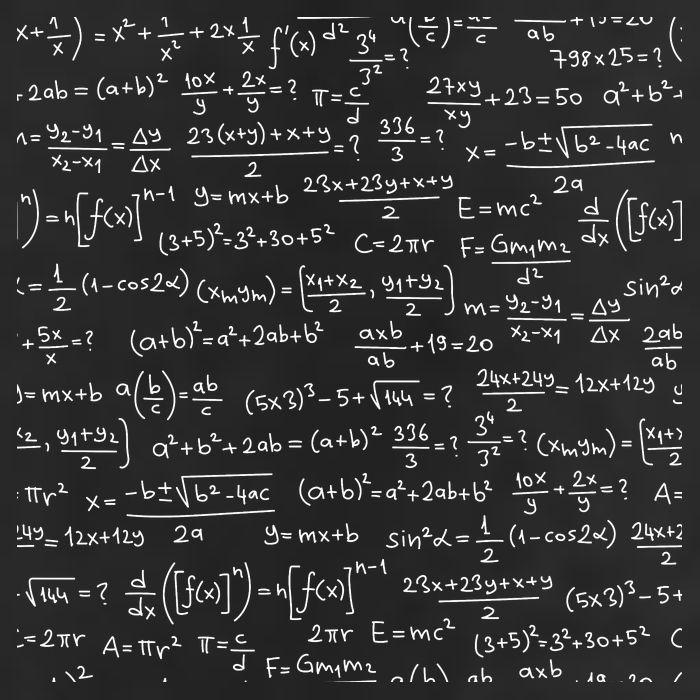 x+1/x) = x²+1/x²+2x1/x f'(x) d² 3⁴/3²=? ab +19=20
798×25=?
2ab=(a+b)² 10x/y+2x/y=? π=c/d 27xy/xy+23=50 a²+b²+
=y₂-y₁/x₂-x₁=Δy/Δx 23(x+y)+x+y/2=? 336/3=? x=-b±√b²-4ac/2a n
n)=n[f(x)]ⁿ⁻¹ y=mx+b 23x+23y+x+y/2 E=mc² d/dx([f(x)]
(3+5)²=3²+30+5² C=2πr F=Gm₁m₂/d²
=1/2(1-cos2α) (xₘyₘ)=[x₁+x₂/2, y₁+y₂/2) m=y₂-y₁/x₂-x₁=Δy/Δx sin²α
+5x/x=? (a+b)²=a²+2ab+b² axb/ab+19=20 2ab/ab
=mx+b a(b/c)=ab/c (5x3)³-5+√144=? 24x+24y/2=12x+12y
, y₁+y₂/2) a²+b²+2ab=(a+b)² 336/3=? 3⁴/3²=? (xₘyₘ)=[x₁+
πr² x=-b±√b²-4ac (a+b)²=a²+2ab+b² 10x/y+2x/y=? A=
=12x+12y 2a y=mx+b sin²α=1/2(1-cos2α) 24x+2/2
√144=? d/dx([f(x)]ⁿ)=n[f(x)]ⁿ⁻¹ 23x+23y+x+y/2 (5x3)³-5+
=2πr A=πr² π=c/d 2πr E=mc² (3+5)²=3²+30+5²
F=Gm₁m₂ axb